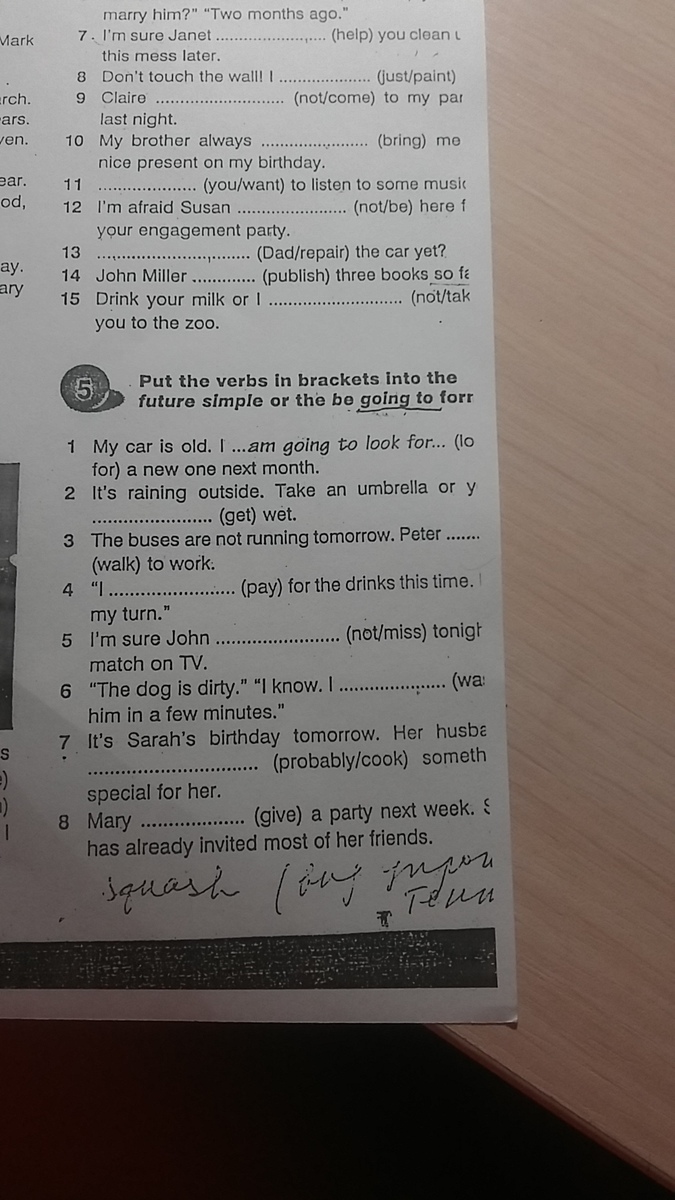 marry him?" "Two months ago."
Mark
7. I'm sure Janet ........................ (help) you clean
this mess later.
8 Don't touch the wall! I .................... (just/paint)
9 Claire ............................ (not/come) to my
last night.
10 My brother always ....................... (bring) me
nice present on my birthday.
11 .................... (you/want) to listen to some
12 I'm afraid Susan ....................... (not/be) here
your engagement party.
13 ................................. (Dad/repair) the car yet?
14 John Miller ............. (publish) three books so
15 Drink your milk or I ............................. (not/tak
you to the zoo.
5 Put the verbs in brackets into the
future simple or the be going to
1 My car is old. I ...am going to look for... (lo
for) a new one next month.
2 It's raining outside. Take an umbrella or y
....................... (get) wet.
3 The buses are not running tomorrow. Peter .......
(walk) to work.
4 "I ........................ (pay) for the drinks this time.
my turn."
5 I'm sure John ........................ (not/miss)
match on TV.
6 "The dog is dirty." "I know. I .................... (wa
him in a few minutes."
7 It's Sarah's birthday tomorrow. Her
............................... (probably/cook) someth
special for her.
8 Mary ................... (give) a party next week. S
has already invited most of her friends.
squash